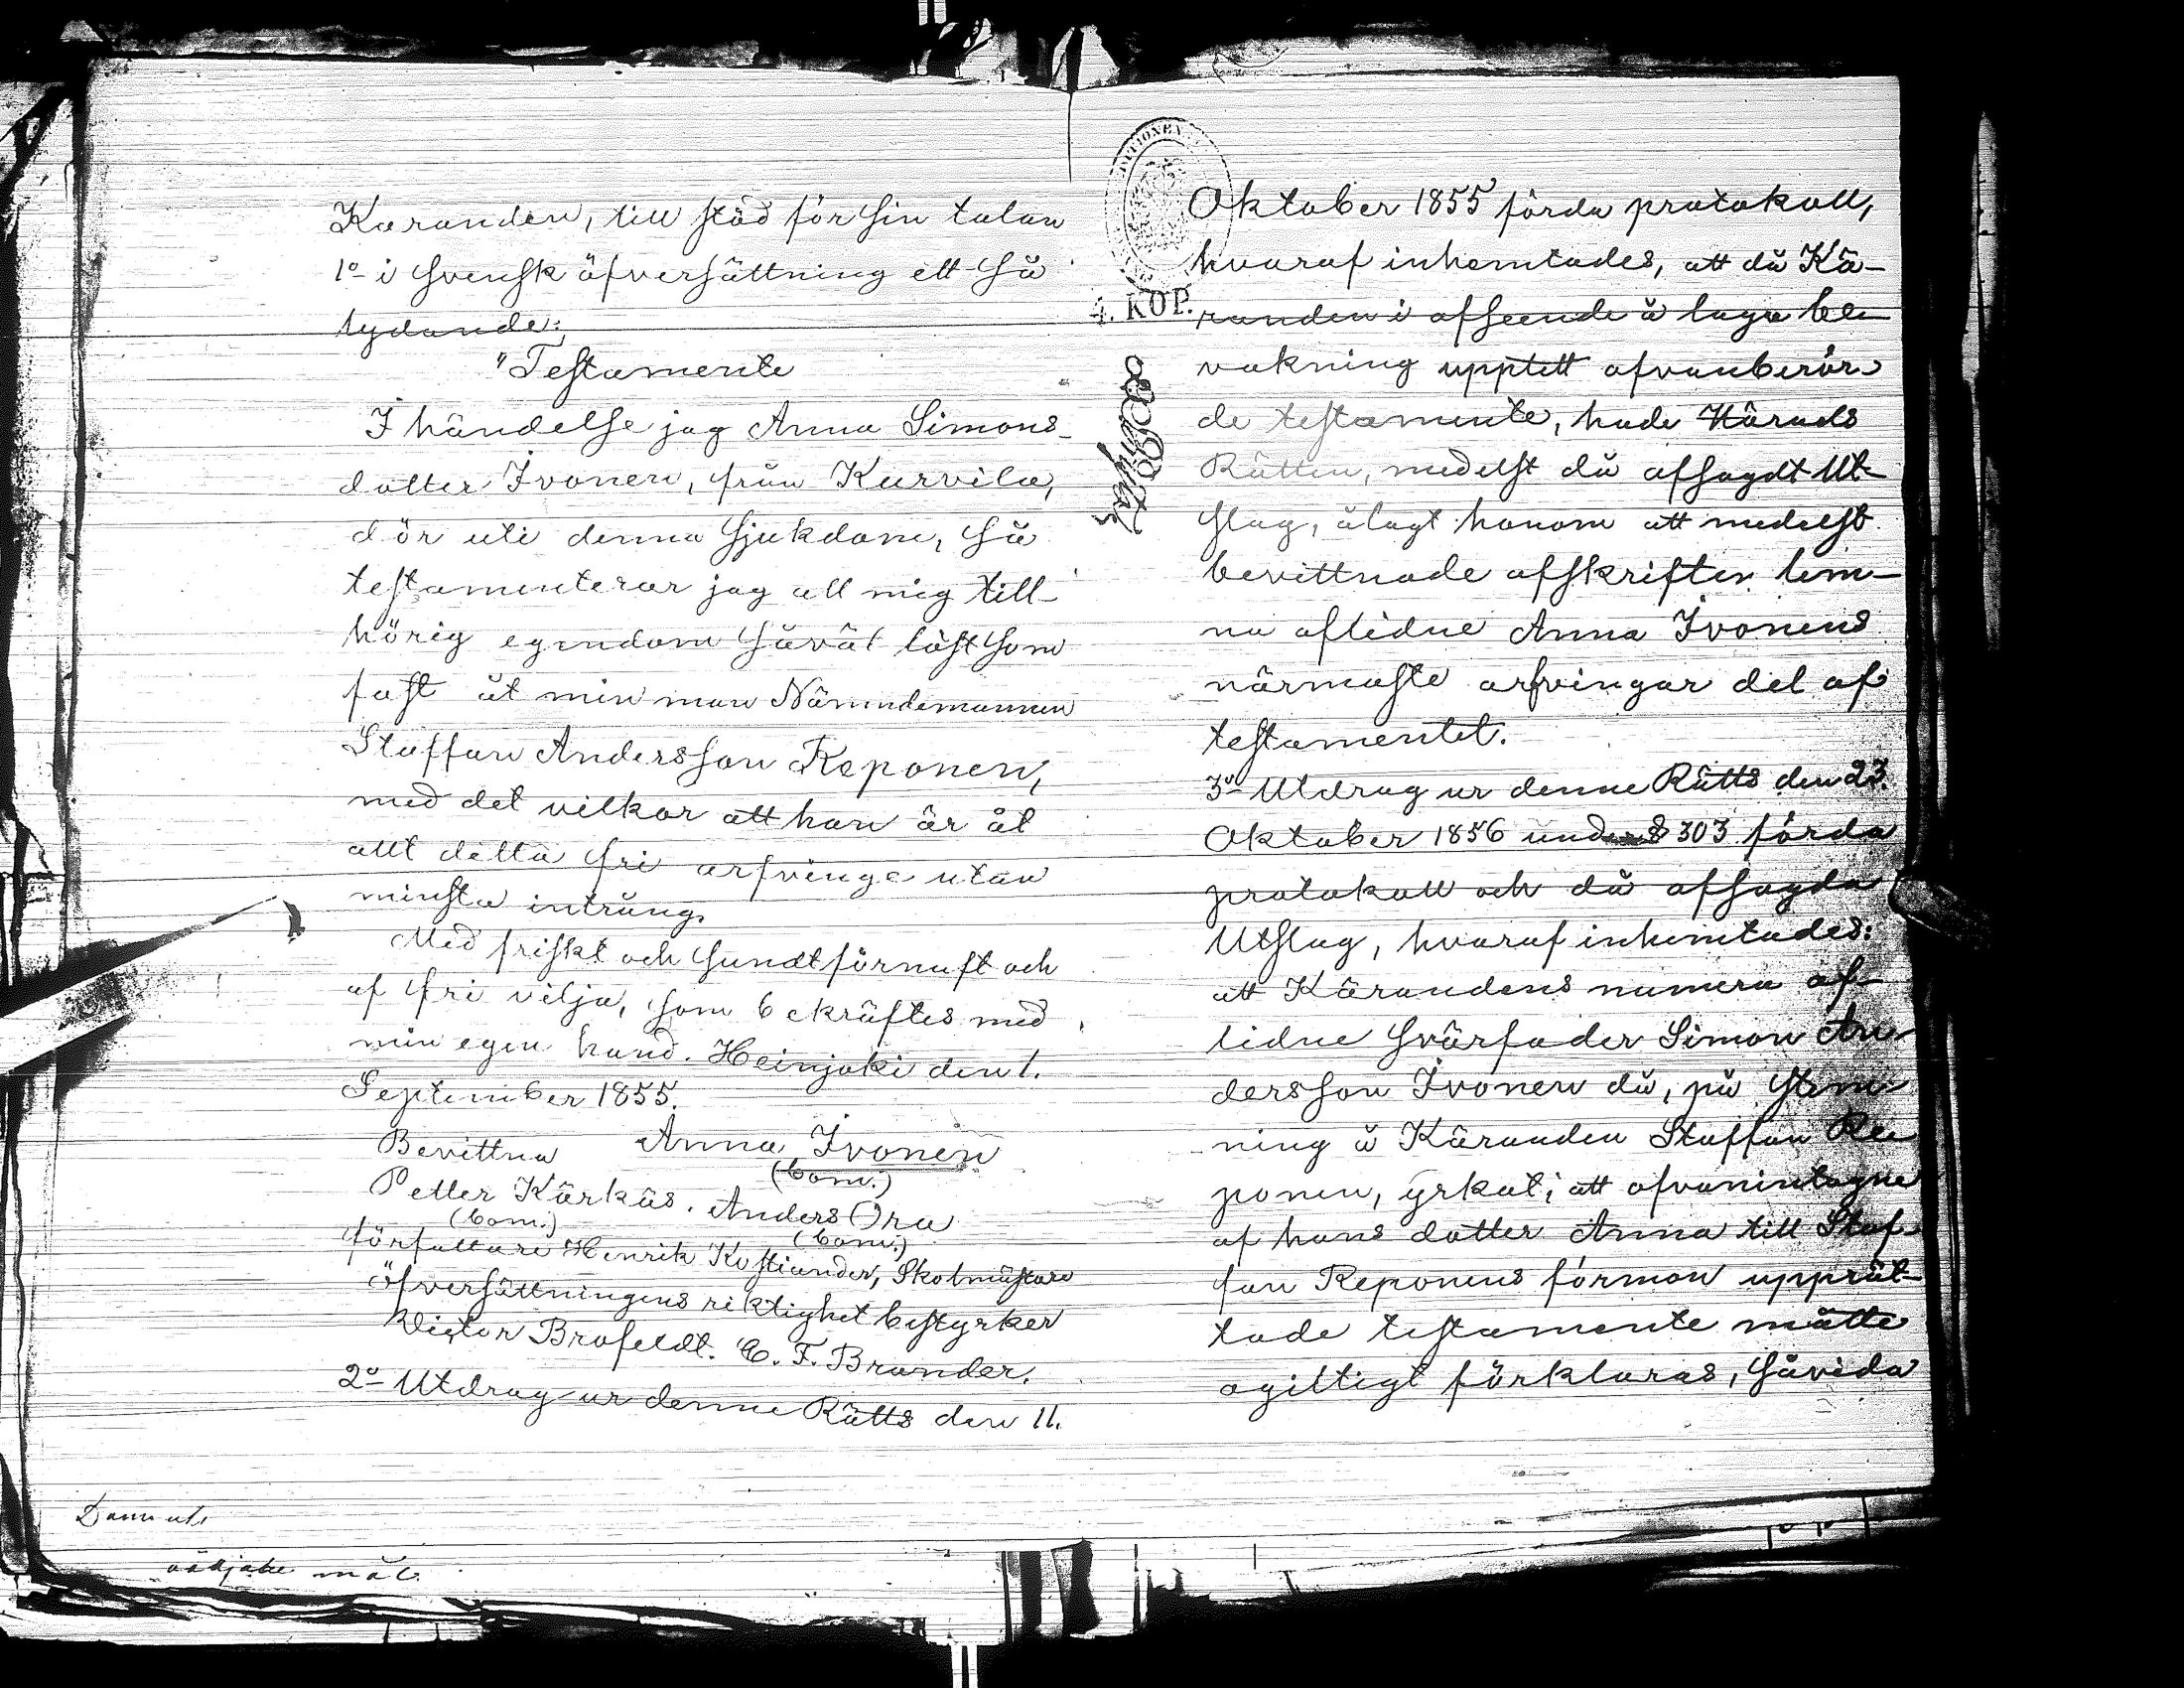 Käranden, till stöd för sin talan
1o i svensk öfversättning ett så
lydande:
"Testamente
I händelse jag Anna Simons-
dotter Ivonen, från Kurvila,
dör uti denna sjukdom, så
testamenterar jag all mig till-
hörig egendom såväl löst som
fast åt min man Nämndemannen
Staffan Andersson Reponen,
med det vilkor att han är åt
allt detta fri arfvinge utan
minsta intrång.
Med friskt och sundt förnuft och
af fri vilja, som bekräftes med
min egen hand. Heinjoki den 1.
September 1855.
Bevittna Anna Ivonen
(bom.)
Petter Kärkäs. Anders Ora
(bom.) (bom.)
författare Henrik Kostiander, Skolmästare
Öfversättningens riktighet bestyrker
Victor Brofeldt. C. F. Brander.
2o Utdrag ur denne Rätts den 11.
Oktober 1855 förda protokoll,
hvaraf inhemtades, att då Kä-
randen i afseende å laga be-
vakning upptett ofvanberör-
de testamente, hade Härads
Rätten, medelst då afsagdt Ut-
slag, ålagt honom att medelst
bevittnade afskrifter lem-
na aflidne Anna Ivonens
närmaste arfvingar del af
testamentet.
3o Utdrag ur denne Rätts den 23.
Oktober 1856 under § 303 förda
protokoll och då afsagda
Utslag, hvaraf inhemtades:
att Kärandens numera af-
lidne svärfader Simon An-
dersson Ivonen då, på stem-
ning å Käranden Staffan Re-
ponen, yrkat; att ofvanintagne
af hans dotter Anna till Staf-
fan Reponens förmon upprät-
tade testamente måtte
ogiltigt förklaras, såvida
4. KOP.
mål.